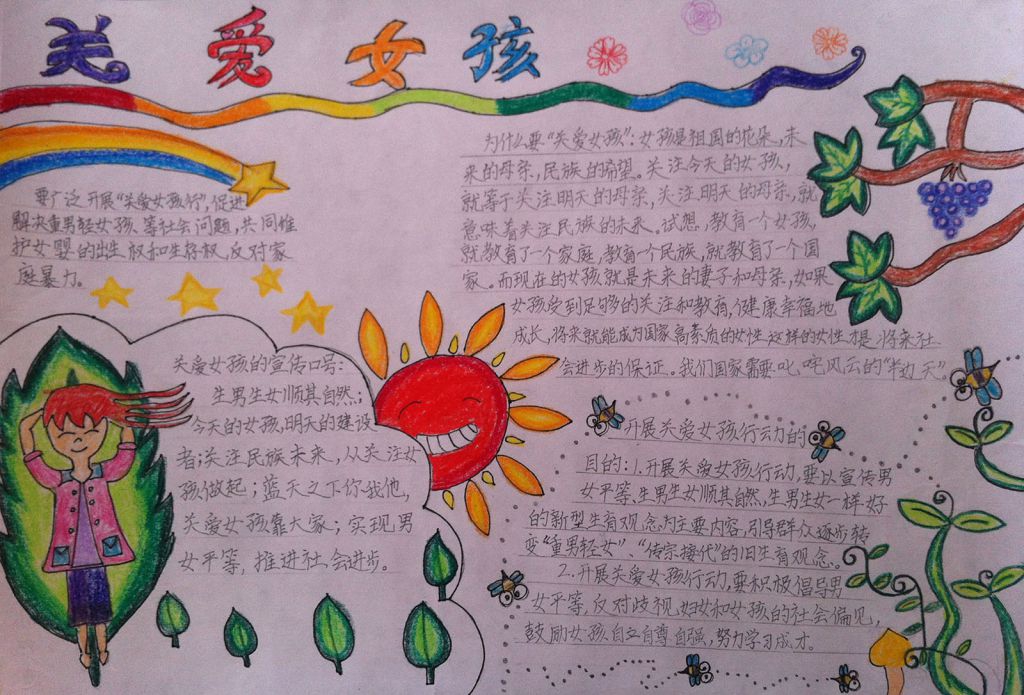 关爱女孩
要广泛开展“关爱女孩行”，促进
解决重男轻女孩等社会问题，共同维
护女婴的出生权和生存权，反对家
庭暴力。
为什么要“关爱女孩”：女孩是祖国的花朵，未
来的母亲，民族的希望。关注今天的女孩，
就等于关注明天的母亲，关注明天的母亲，就
意味着关注民族的未来。试想，教育一个女孩，
就教育了一个家庭，教育一个民族，就教育了一个国
家。而现在的女孩就是未来的妻子和母亲，如果
女孩受到足够的关注和教育，健康幸福地
成长，将来就能成为国家高素质的女性，这样的女性才是将来社
会进步的保证。我们国家需要叱咤风云的“半边天”。
关爱女孩的宣传口号：
生男生女顺其自然；
今天的女孩，明天的建设
者；关注民族未来，从关注女
孩做起；蓝天之下你我他，
关爱女孩靠大家；实现男
女平等，推进社会进步。
开展关爱女孩行动的
目的：1.开展关爱女孩行动，要以宣传男
女平等、生男生女顺其自然，生男生女一样好
的新型生育观念为主要内容，引导群众逐步转
变“重男轻女”、“传宗接代”的旧生育观念。
2.开展关爱女孩行动，要积极倡导男
女平等，反对歧视妇女和女孩的社会偏见，
鼓励女孩自立自尊自强，努力学习成才。